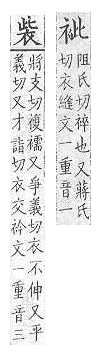 阻氏切也又蔣氏
切衣縫文一重音一
將支切複襦又爭義切衣不伸又平
義切又才詣切衣交衿文一重音三